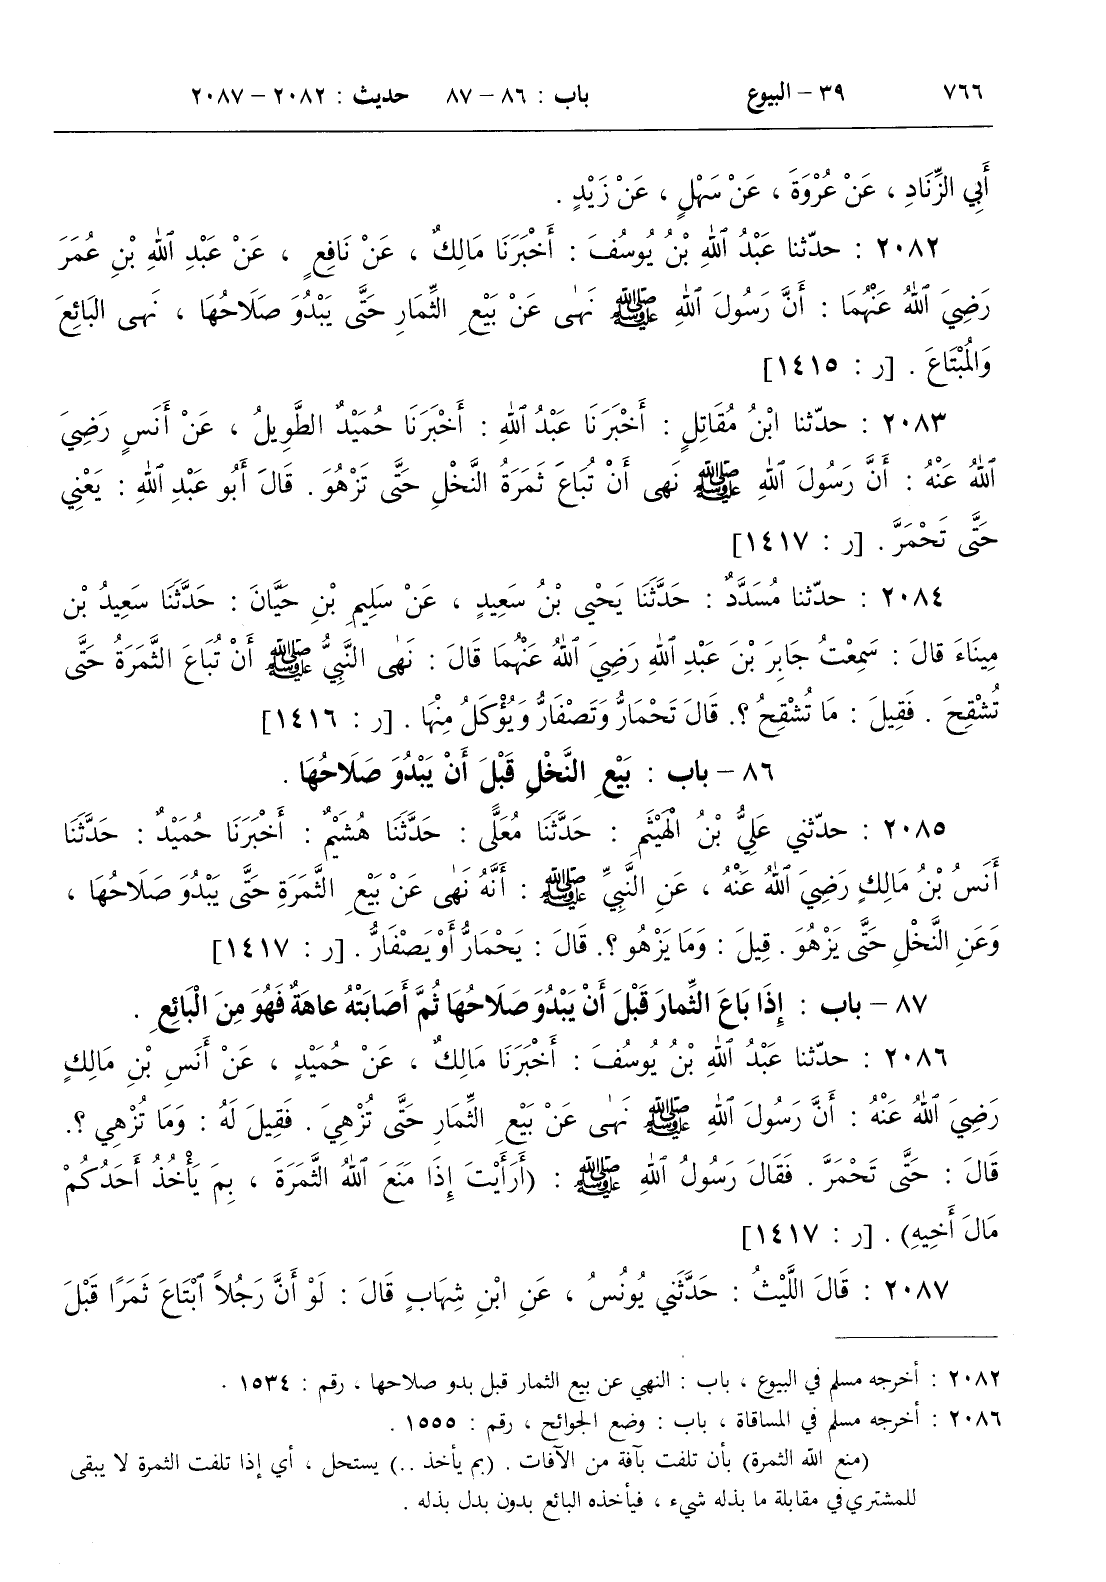 ٧٦٦ ٣٩ – البيوع باب : ٨٦ – ٨٧ حديث : ٢٠٨٢ – ٢٠٨٧
أَبِي الزِّنَادِ ، عَنْ عُرْوَةَ ، عَنْ سَهْلٍ ، عَنْ زَيْدٍ .
٢٠٨٢ : حدّثنا عَبْدُ ٱللهِ بْنُ يُوسُفَ : أَخْبَرَنَا مَالِكٌ ، عَنْ نَافِعٍ ، عَنْ عَبْدِ ٱللهِ بْنِ عُمَرَ
رَضِيَ ٱللهُ عَنْهُمَا : أَنَّ رَسُولَ ٱللهِ ﷺ نَهٰى عَنْ بَيْعِ الثِّمَارِ حَتَّى يَبْدُوَ صَلَاحُهَا ، نَهى البَائِعَ
وَالْمُبْتَاعَ . [ر : ١٤١٥]
٢٠٨٣ : حدّثنا ابْنُ مُقَاتِلٍ : أَخْبَرَنَا عَبْدُ ٱللهِ : أَخْبَرَنَا حُمَيْدٌ الطَّوِيلُ ، عَنْ أَنَسٍ رَضِيَ
ٱللهُ عَنْهُ : أَنَّ رَسُولَ ٱللهِ ﷺ نَهى أَنْ تُبَاعَ ثَمَرَةُ النَّخْلِ حَتَّى تَزْهُوَ . قَالَ أَبُو عَبْدِ ٱللهِ : يَعْنِي
حَتَّى تَحْمَرَّ . [ر : ١٤١٧]
٢٠٨٤ : حدّثنا مُسَدَّدٌ : حَدَّثَنَا يَحْيى بْنُ سَعِيدٍ ، عَنْ سَلِيمِ بْنِ حَيَّانَ : حَدَّثَنَا سَعِيدُ بْن
مِينَاءَ قالَ : سَمِعْتُ جَابِرَ بْنَ عَبْدِ ٱللهِ رَضِيَ ٱللهُ عَنْهُمَا قَالَ : نَهٰى النَّبِيُّ ﷺ أَنْ تُبَاعَ الثَّمَرَةُ حَتَّى
تُشْقِحَ . فَقِيلَ : مَا تُشْقِحُ ؟. قَالَ تَحْمَارُّ وَتَصْفَارُّ وَيُؤْكَلُ مِنْهَا . [ر : ١٤١٦]
٨٦ – باب : بَيْعِ النَّخْلِ قَبْلَ أَنْ يَبْدُوَ صَلَاحُهَا .
٢٠٨٥ : حدّثني عَلِيُّ بْنُ الْهَيْثَمِ : حَدَّثَنَا مُعَلًّى : حَدَّثَنَا هُشَيْمٌ : أَخْبَرَنَا حُمَيْدٌ : حَدَّثَنَا
أَنَسُ بْنُ مَالِكٍ رَضِيَ ٱللهُ عَنْهُ ، عَنِ النَّبِيِّ ﷺ : أَنَّهُ نَهٰى عَنْ بَيْعِ الثَّمَرَةِ حَتَّى يَبْدُوَ صَلَاحُهَا ،
وَعَنِ النَّخْلِ حَتَّى يَزْهُوَ . قِيلَ : وَمَا يَزْهُو ؟. قَالَ : يَحْمَارُّ أَوْ يَصْفَارُّ . [ر : ١٤١٧]
٨٧ – باب : إِذَا بَاعَ الثِّمَارَ قَبْلَ أَنْ يَبْدُوَ صَلَاحُهَا ثُمَّ أَصَابَتْهُ عاهَةٌ فَهُوَ مِنَ الْبَائِعِ .
٢٠٨٦ : حدّثنا عَبْدُ ٱللهِ بْنُ يُوسُفَ : أَخْبَرَنَا مَالِكٌ ، عَنْ حُمَيْدٍ ، عَنْ أَنَسِ بْنِ مَالِكٍ
رَضِيَ ٱللهُ عَنْهُ : أَنَّ رَسُولَ ٱللهِ ﷺ نَهٰى عَنْ بَيْعِ الثِّمَارِ حَتَّى تُزْهِيَ . فَقِيلَ لَهُ : وَمَا تُزْهِي ؟.
قَالَ : حَتَّى تَحْمَرَّ . فَقَالَ رَسُولُ ٱللهِ ﷺ : (أَرَأَيْتَ إِذَا مَنَعَ ٱللهُ الثَّمَرَةَ ، بِمَ يَأْخُذُ أَحَدُكُمْ
مَالَ أَخِيهِ) . [ر : ١٤١٧]
٢٠٨٧ : قَالَ اللَّيْثُ : حَدَّثَنِي يُونُسُ ، عَنِ ابْنِ شِهَابٍ قَالَ : لَوْ أَنَّ رَجُلاً ٱبْتَاعَ ثَمَرًا قَبْلَ
٢٠٨٢ : أخرجه مسلم في البيوع ، باب : النهي عن بيع الثمار قبل بدو صلاحها ، رقم : ١٥٣٤ .
٢٠٨٦ : أخرجه مسلم في المساقاة ، باب : وضع الجوائح ، رقم : ١٥٥٥ .
(منع الله الثمرة) بأن تلفت بآفة من الآفات . (بم يأخذ ..) يستحل ، أي إذا تلفت الثمرة لا يبقى
للمشتري في مقابلة ما بذله شيء ، فيأخذه البائع بدون بدل بذله .